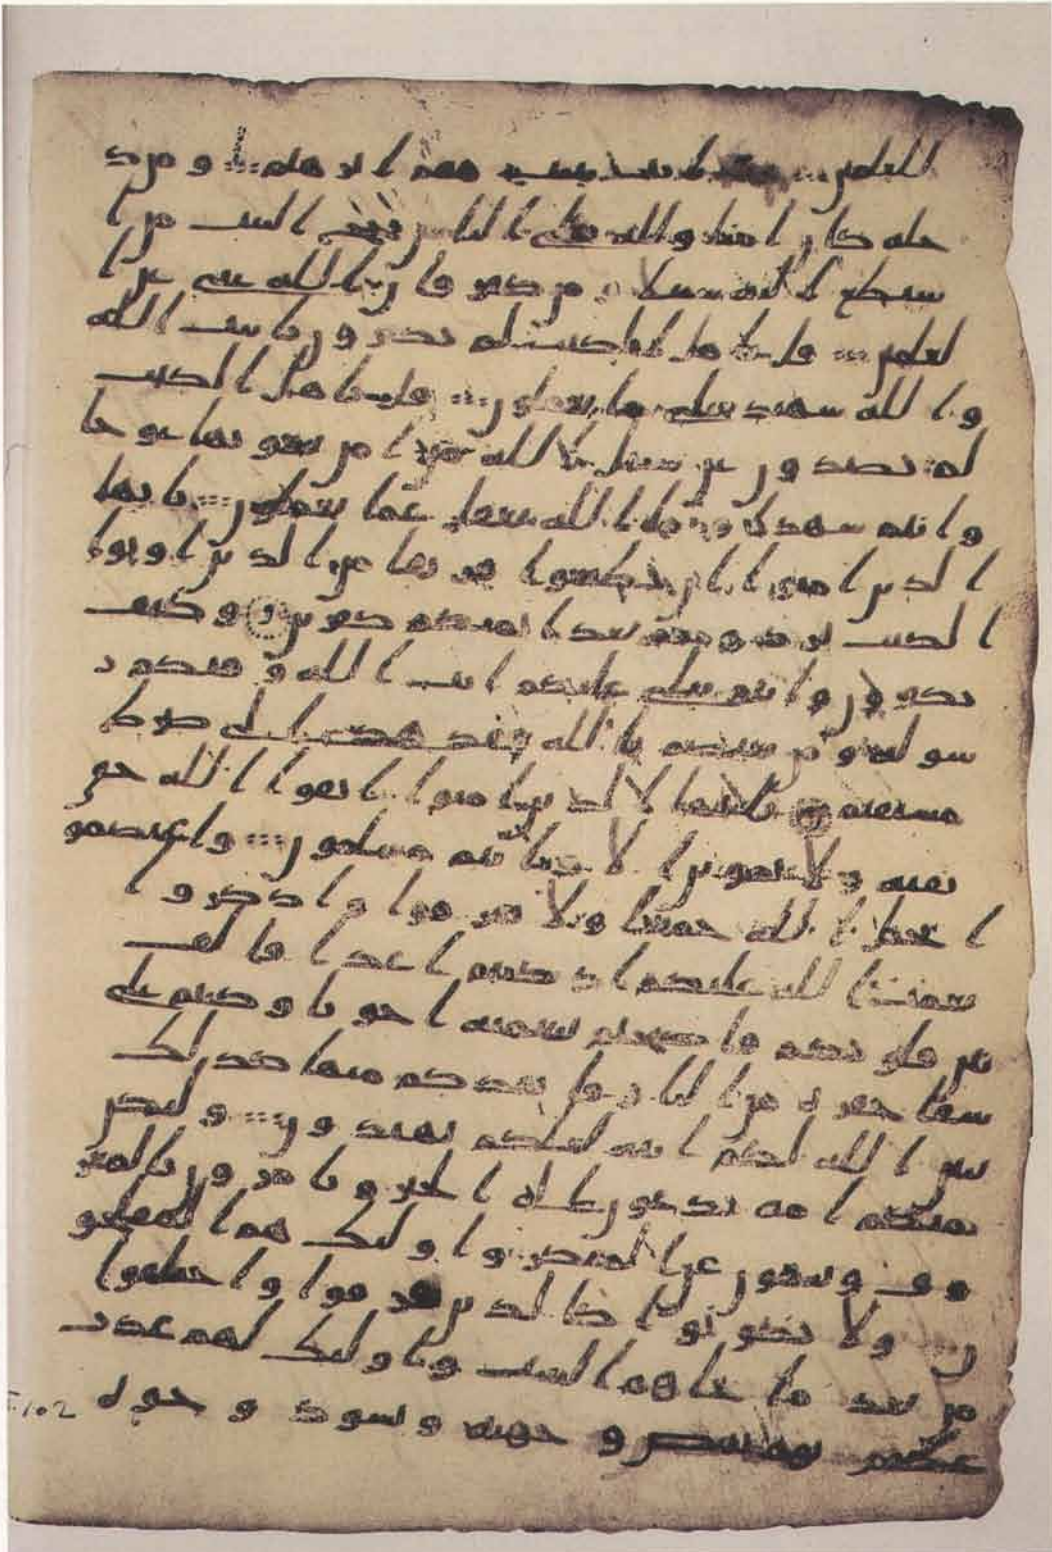 للعلمين فيه ايت بينت مقم ابرهيم و من د
خله كان امنا ولله على الناس حج البيت من ا
ستطع اليه سبيلا و من كفر فان الله غني عن ا
لعلمين قل يا هل الكتب لم تكفرون بايت الله
و الله شهيد على ما تعملون قل يا هل الكتب
لم تصدون عن سبيل الله من امن تبغونها عوجا
وانتم شهدا وما الله بغفل عما تعملون يايها
الذين امنوا ان تطيعوا فريقا من الذين اوتوا
الكتب يردوكم بعد ايمنكم كفرين وكيف
تكفرون وانتم تتلى عليكم ايت الله و فيكم ر
سوله ومن يعتصم بالله فقد هدي الى صرط
مستقيم يايها الذين امنوا اتقوا الله حق
تقته ولا تموتن الا وانتم مسلمون واعتصمو
ا بحبل الله جميعا ولا تفرقوا واذكروا
نعمت الله عليكم اذ كنتم اعدا فالف
بين قلوبكم فاصبحتم بنعمته اخونا وكنتم على
شفا حفرة من النار فانقذكم منها كذلك
يبين الله لكم ايته لعلكم تهتدون ولتكن
منكم امة يدعون الى الخير ويامرون بالمعر
وف وينهون عن المنكر واوليك هم المفلحو
ن ولا تكونوا كالذين تفرقوا واختلفوا
من بعد ما جاهم البينت واوليك لهم عذب
عظيم يوم تبيض وجوه وتسود وجوه
F.102